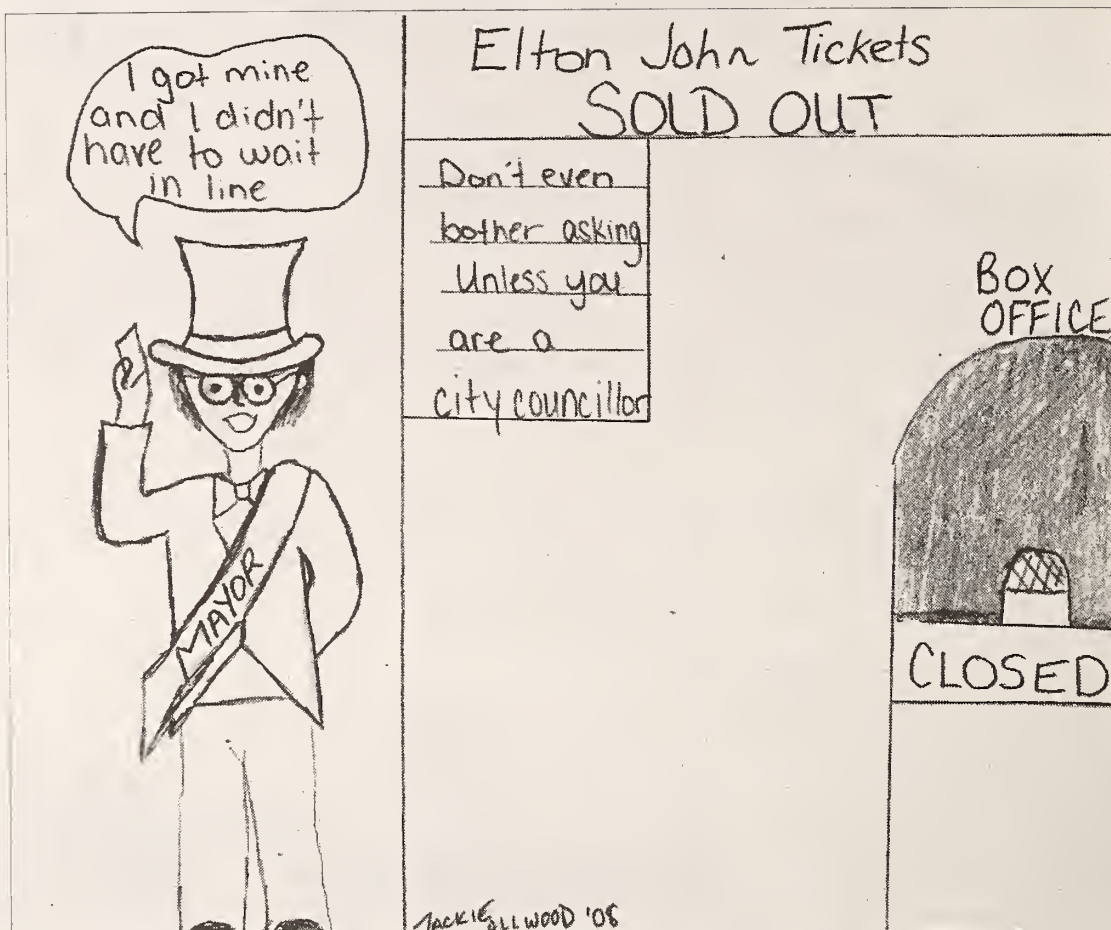 I got mine
and I didn't
have to wait
in line
Elton John Tickets
SOLD OUT
Don't even
bother asking
Unless you
are a
city councillor
BOX
OFFICE
CLOSED
MAYOR
JACKIE ALLWOOD '08